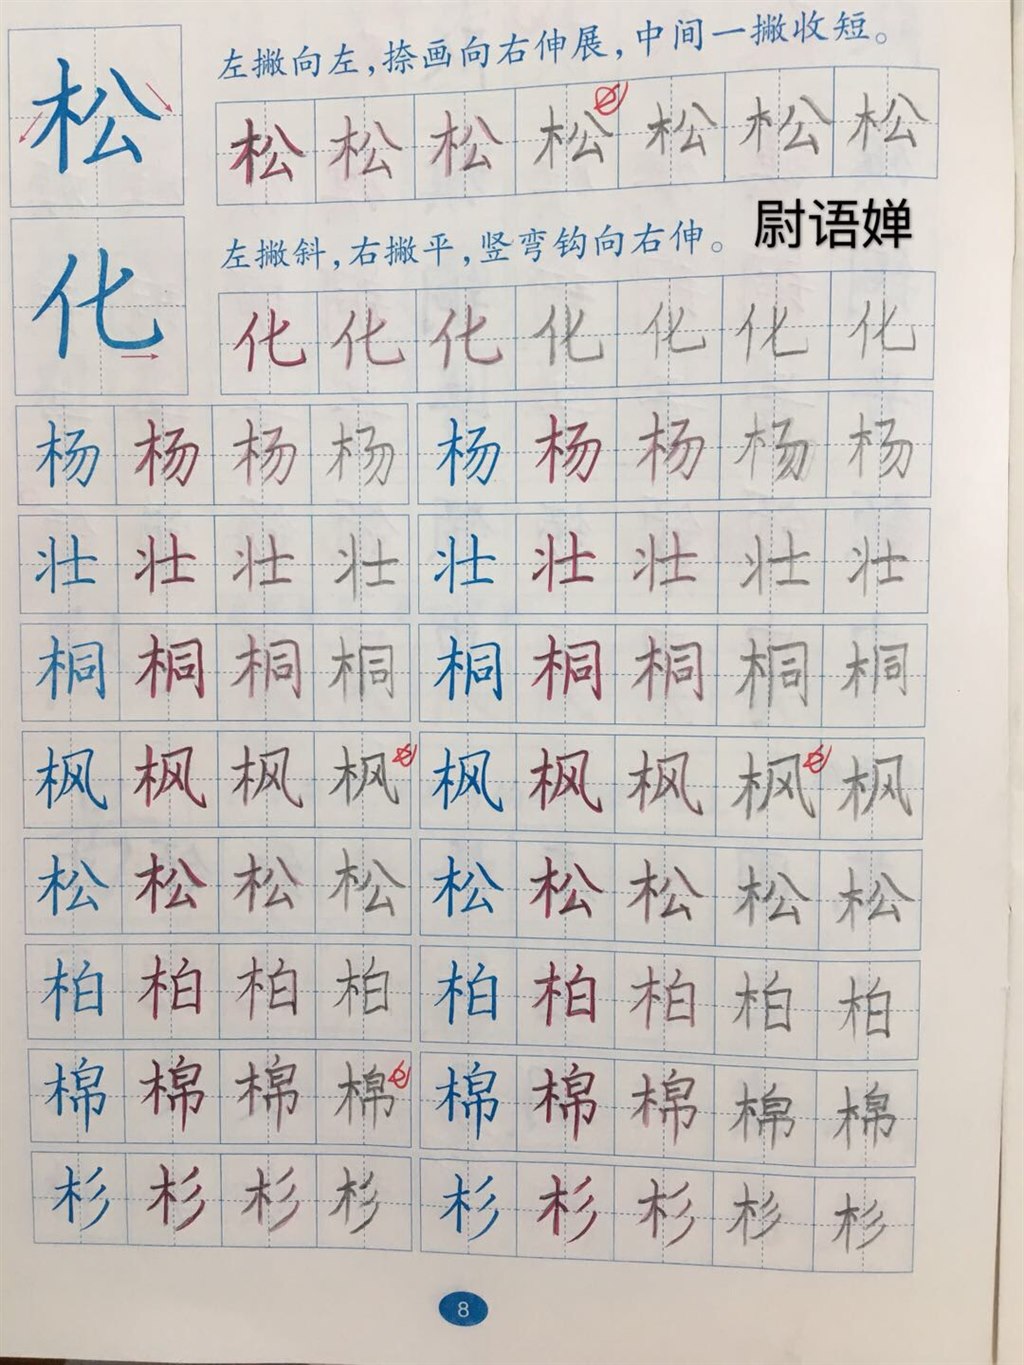 松
左撇向左，捺画向右伸展，中间一撇收短。
松松松松松松松
尉语婵
化
左撇斜，右撇平，竖弯钩向右伸。
化化化化化化化
杨杨杨杨 杨杨杨杨杨
壮壮壮壮 壮壮壮壮壮
桐桐桐桐 桐桐桐桐桐
枫枫枫枫 枫枫枫枫枫
松松松松 松松松松松
柏柏柏柏 柏柏柏柏柏
棉棉棉棉 棉棉棉棉棉
杉杉杉杉 杉杉杉杉杉
8